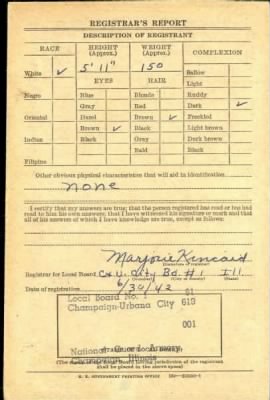 REGISTRAR'S REPORT
DESCRIPTION OF REGISTRANT
RACE HEIGHT (Approx.) WEIGHT (Approx.) COMPLEXION
White ✓ 5' 11" 150 Sallow
EYES HAIR Light
Negro Blue Blonde Ruddy
Gray Red Dark ✓
Oriental Hazel Brown ✓ Freckled
Brown ✓ Black Light brown
Indian Black Gray Dark brown
Bald Black
Filipino
Other obvious physical characteristics that will aid in identification
None
I certify that my answers are true; that the person registered has read or has had
read to him his own answers; that I have witnessed his signature or mark and that
all of his answers of which I have knowledge are true, except as follows:
Marjorie Kincaid
(Signature of registrar)
Registrar for Local Board City Bd. #1 Ill.
Date of registration 6/30/42
Local Board No. 1 61
Champaign-Urbana City 613
001
National Guard Armory
Champaign, Illinois
(The stamp of the Local Board having jurisdiction of the registrant
shall be placed in the above space)
U. S. GOVERNMENT PRINTING OFFICE